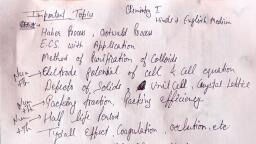 Important Topics Chemistry I
Hindi & English Medium
Haber Process, Ostwald Process
E.C.S. with Application
Method of Purification of Colloids
Num + Th Electrode potential of cell & cell equation
Defects of Solids Unit Cell, Crystal Lattice
Num + Th Packing fraction, Packing efficiency
Num + Th Half life Period
Tyndall Effect, Coagulation, etc